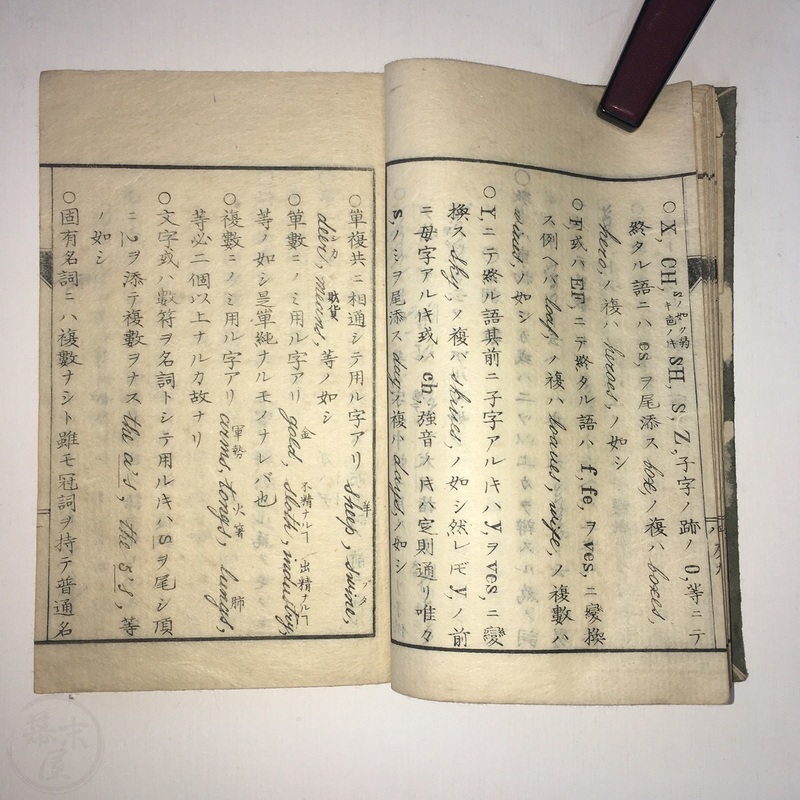 ○X, CH, Sノ如ク発キ音ノ𪜈 SH, S, Z, 子字ノ跡ノO,等ニテ
終タル語ニハes,ヲ尾添ス box,ノ複ハ boxes,
hero,ノ複ハ heroes,ノ如シ
○F,或ハEFニテ終タル語ハf,fe,ヲves,ニ變換
ス例ヘハ loaf,ノ複ハ loaves, wife,ノ複數ハ
wives,ノ如シ
○Y,ニテ終ル語其前ニ子字アル𪜈ハy,ヲves,ニ變
換ス sky,ノ複バ skies,ノ如シ然レ𪜈y,ノ前
ニ母字アル𪜈或ハch,強音ノ𪜈ハ定則通リ唯々
s,ノミヲ尾添ス day,ノ複ハ days,ノ如シ
○單複共ニ相通シテ用ル字アリ sheep, 羊 swine, ブタ
deer, シカ means, 等ノ如シ
○單數ニノミ用ル字アリ gold, 金 sloth, 不精ナルヿ industry, 出精ナルヿ
等ノ如シ是單純ナルモノナレバ也
○複數ニノミ用ル字アリ arms, 軍勢 tongs, 火箸 lungs, 肺
等必二個以上ナルカ故ナリ
○文字或ハ數符ヲ名詞トシテ用ル𪜈ハSヲ尾シ頂
ニ ヲ添テ複數ヲナス the a's, the 5's, 等
ノ如シ
○固有名詞ニハ複數ナシト雖モ冠詞ヲ持テ普通名
幕末屋